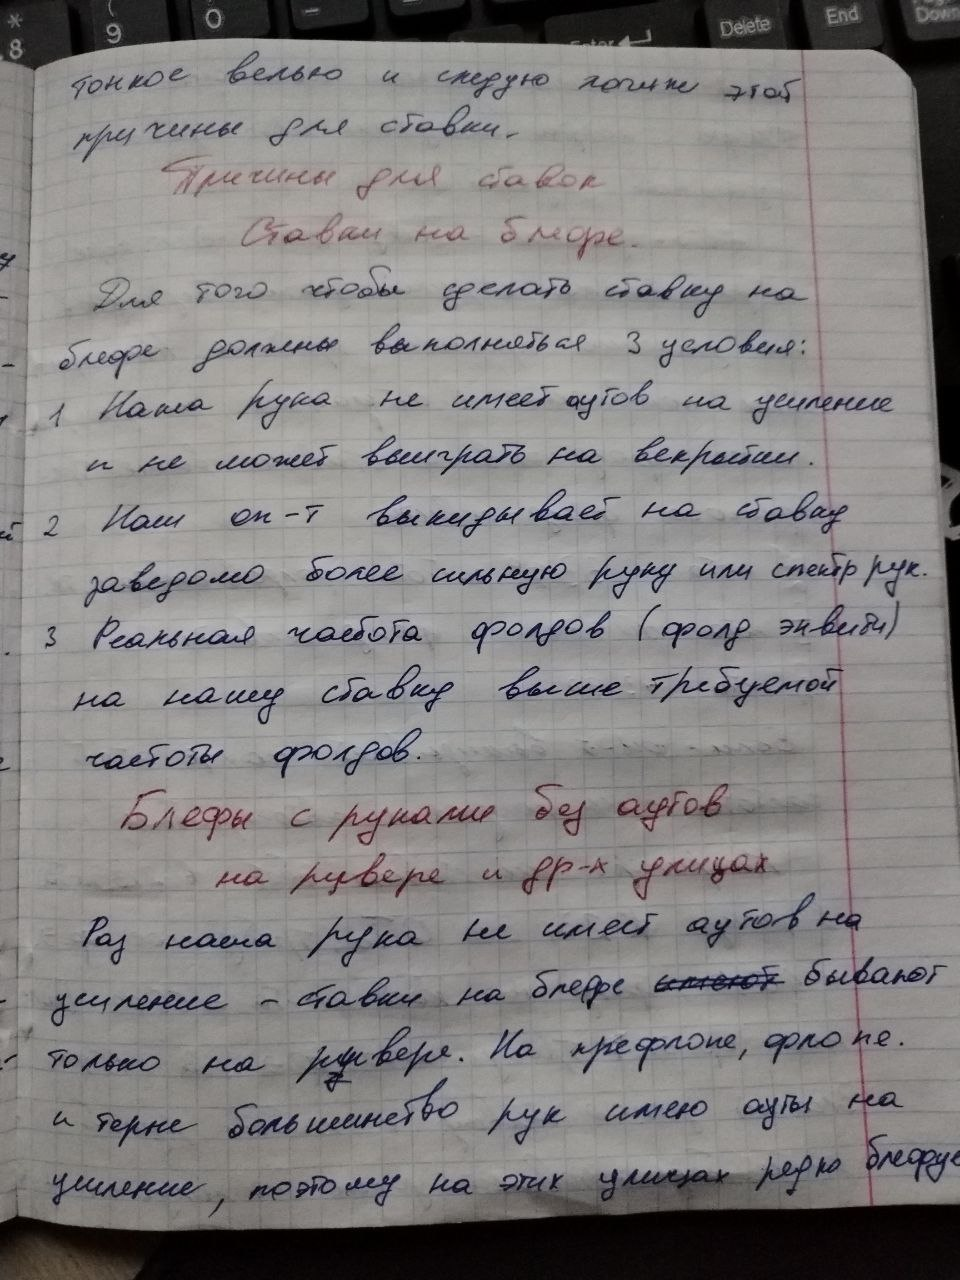 * 8
( 9
) 0
Delete
End
Down
Enter
тонкое велью и следую логике этой
причины для ставки.
Причины для ставок
Ставки на блефе.
Для того чтобы сделать ставку на
блефе должны выполняться 3 условия:
1 Наша рука не имеет аутов на усиление
и не может выиграть на вскрытии.
2 Наш оп-т выкидывает на ставку
заведомо более сильную руку или спектр рук.
3 Реальная частота фолдов (фолд эквити)
на нашу ставку выше требуемой
частоты фолдов.
Блефы с руками без аутов
на ривере и др-х улицах
Раз наша рука не имеет аутов на
усиление - ставки на блефе имеют бывают
только на ривере. На префлопе, флопе.
и терне большинство рук имею ауты на
усиление, поэтому на этих улицах редко блефуе